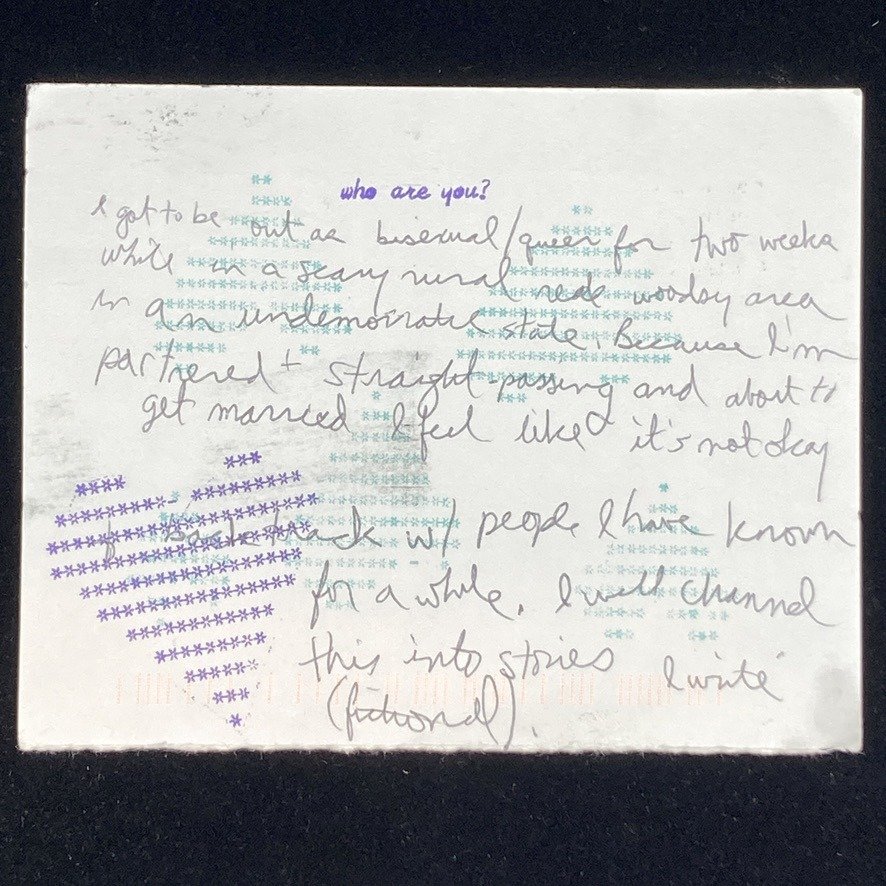 who are you?
I got to be out as bisexual/queer for two weeks
while in a scary rural red woodsy area
in an undemocratic state. Because I'm
partnered + straight-passing and about to
get married I feel like it's not okay
to backtrack w/ people I have known
for a while. I will channel
this into stories I write
(fictional).